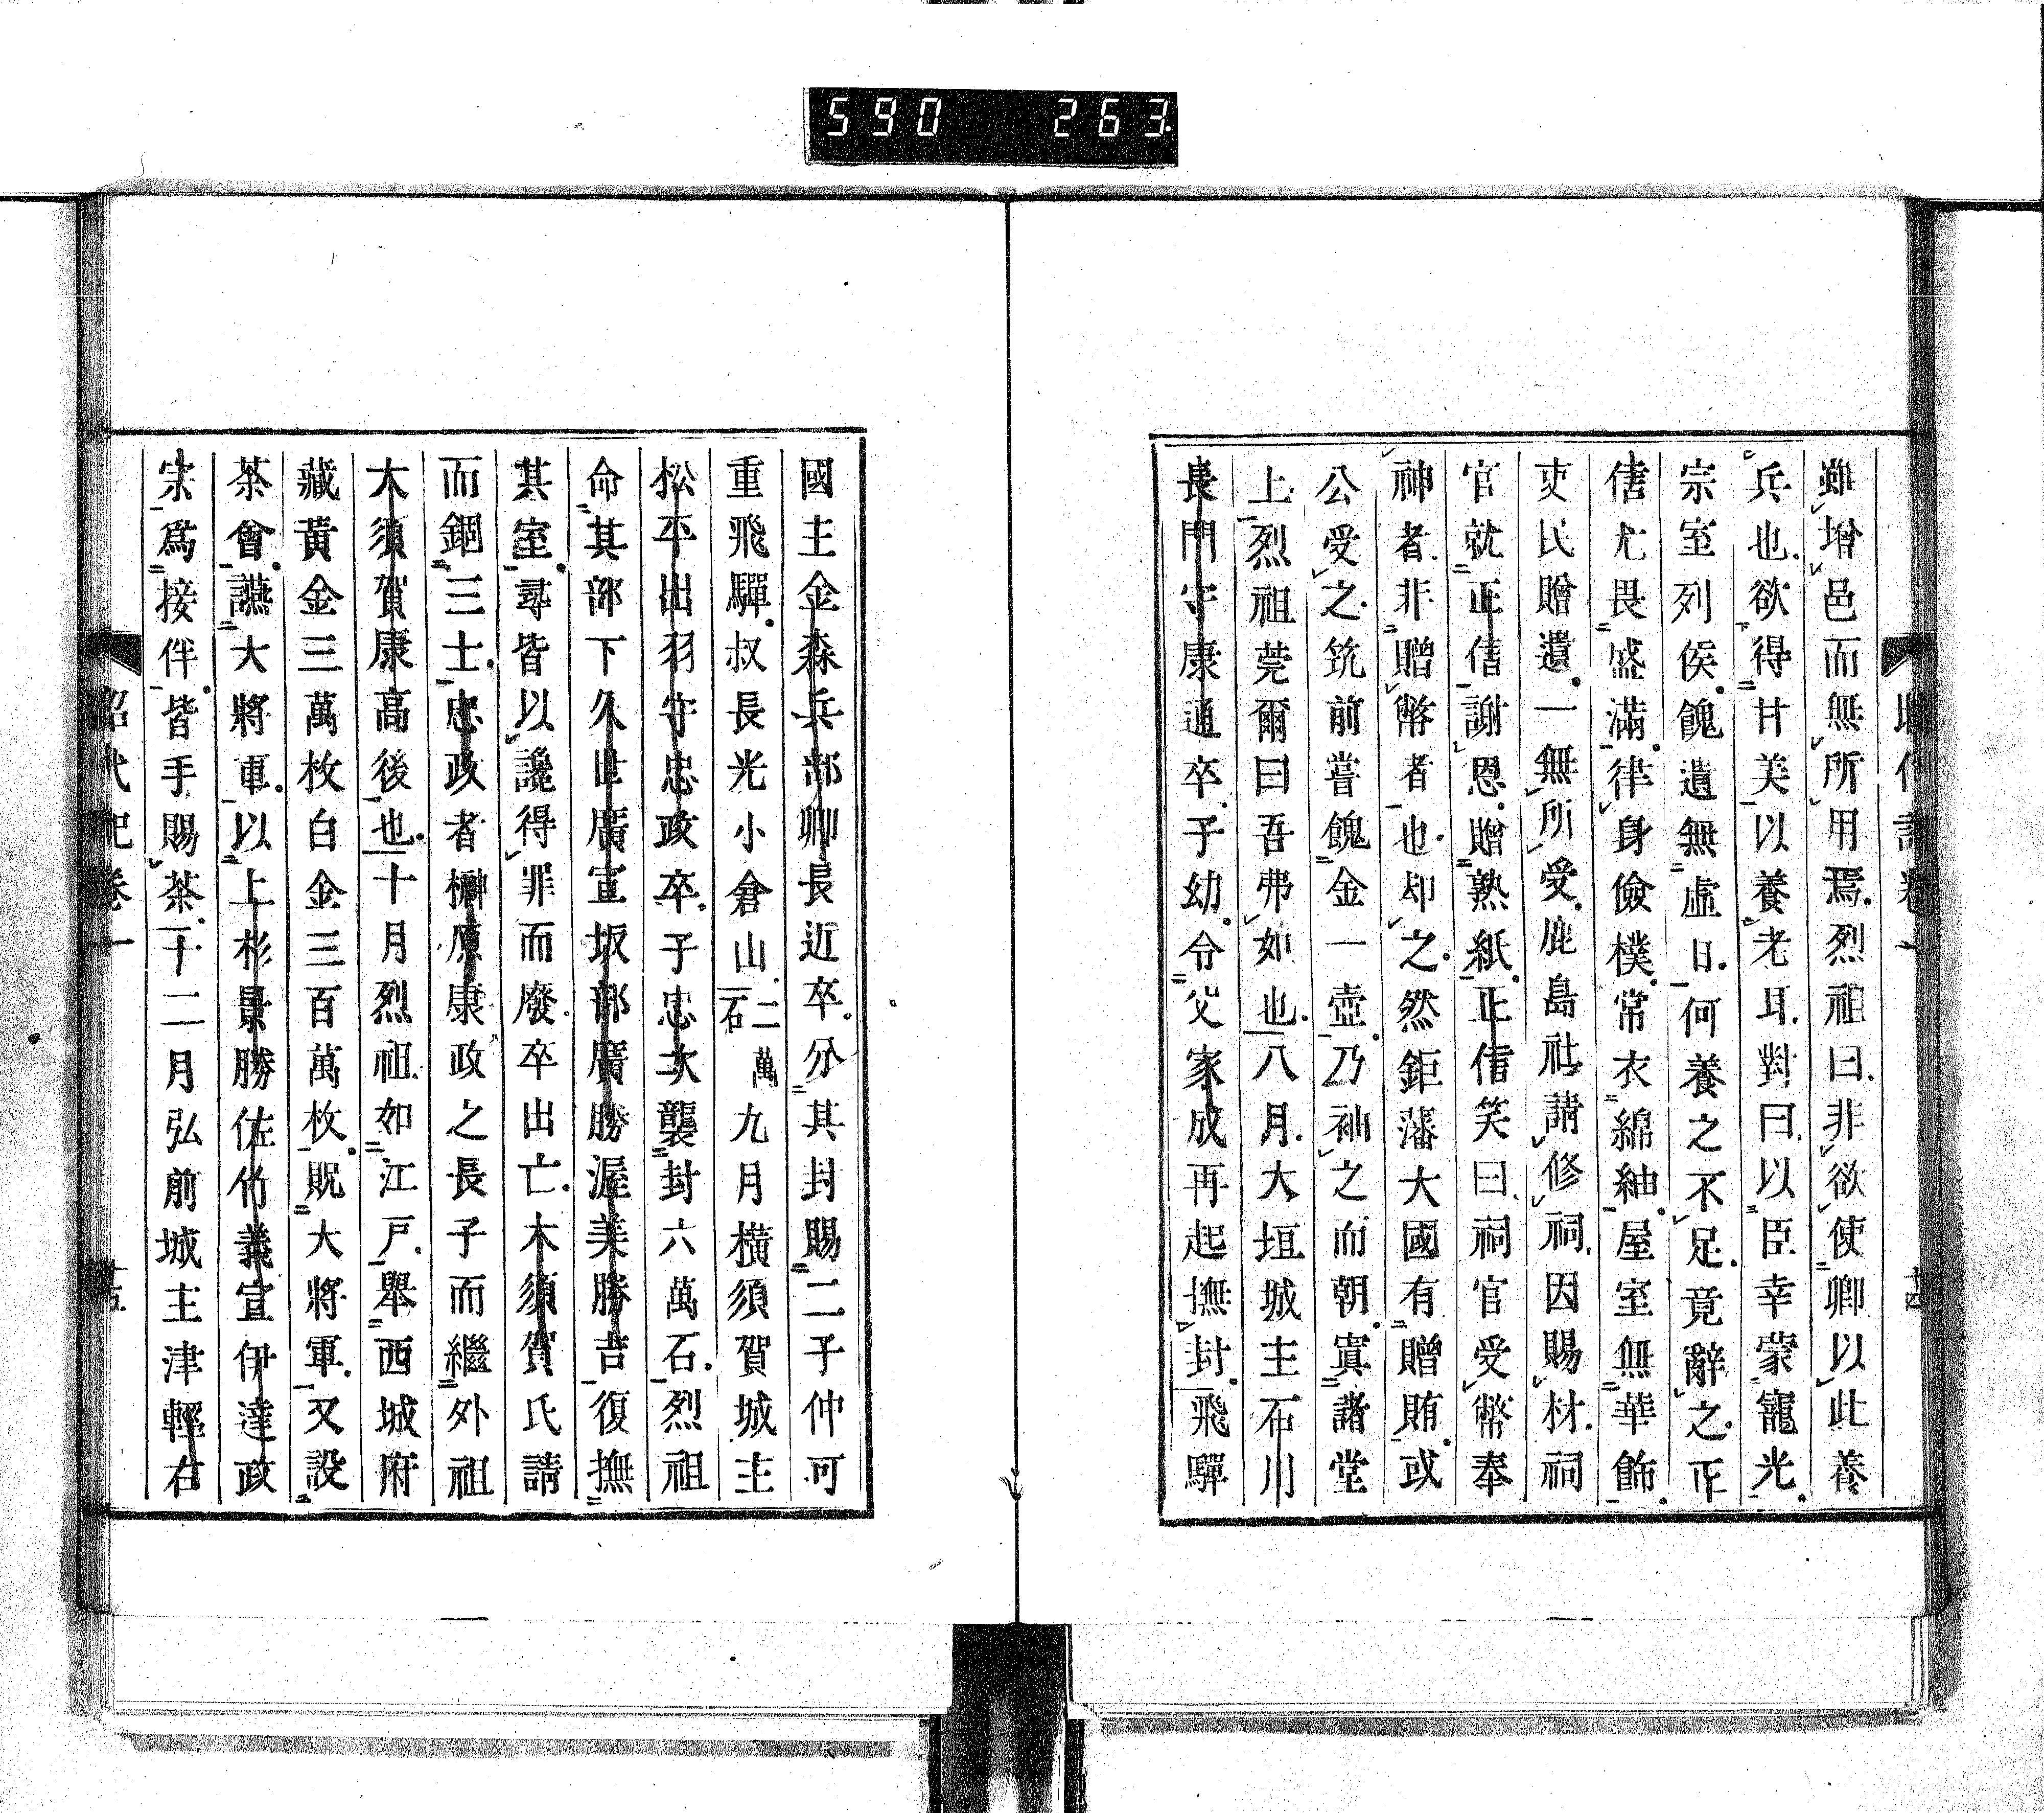 590 263
雖増邑而無所用焉烈祖曰非欲使卿以此養
兵也欲得甘美以養老耳對曰以臣幸蒙寵光
宗室列侯餽遺無虛日何養之不足竟辭之正
信尤畏盛滿律身儉樸常衣綿紬屋室無華飾
吏民贈遺一無所受鹿島社請修祠因賜材祠
官就正信謝恩贈熟紙正信笑曰祠官受幣奉
神者非贈幣者也却之然鉅藩大國有贈賄或
公受之筑前嘗餽金一壺乃袖之而朝寘諸堂
上烈祖莞爾曰吾弗如也八月大垣城主石川
長門守康通卒子幼令父家成再起撫封飛驒
國主金森兵部卿長近卒分其封賜二子仲可
重飛驒叔長光小倉山二萬石九月横須賀城主
松平出羽守忠政卒子忠次襲封六萬石烈祖
命其部下久世廣宣坂部廣勝渥美勝吉復撫
其室尋皆以讒得罪而廢卒出亡大須賀氏請
而錮三士忠政者榊原康政之長子而繼外祖
大須賀康高後也十月烈祖如江戸舉西城府
藏黄金三萬枚白金三百萬枚貺大將軍又設
茶會讌大將軍以上杉景勝佐竹義宣伊達政
宗爲接伴皆手賜茶十二月弘前城主津輕右
昭代記卷一 十五